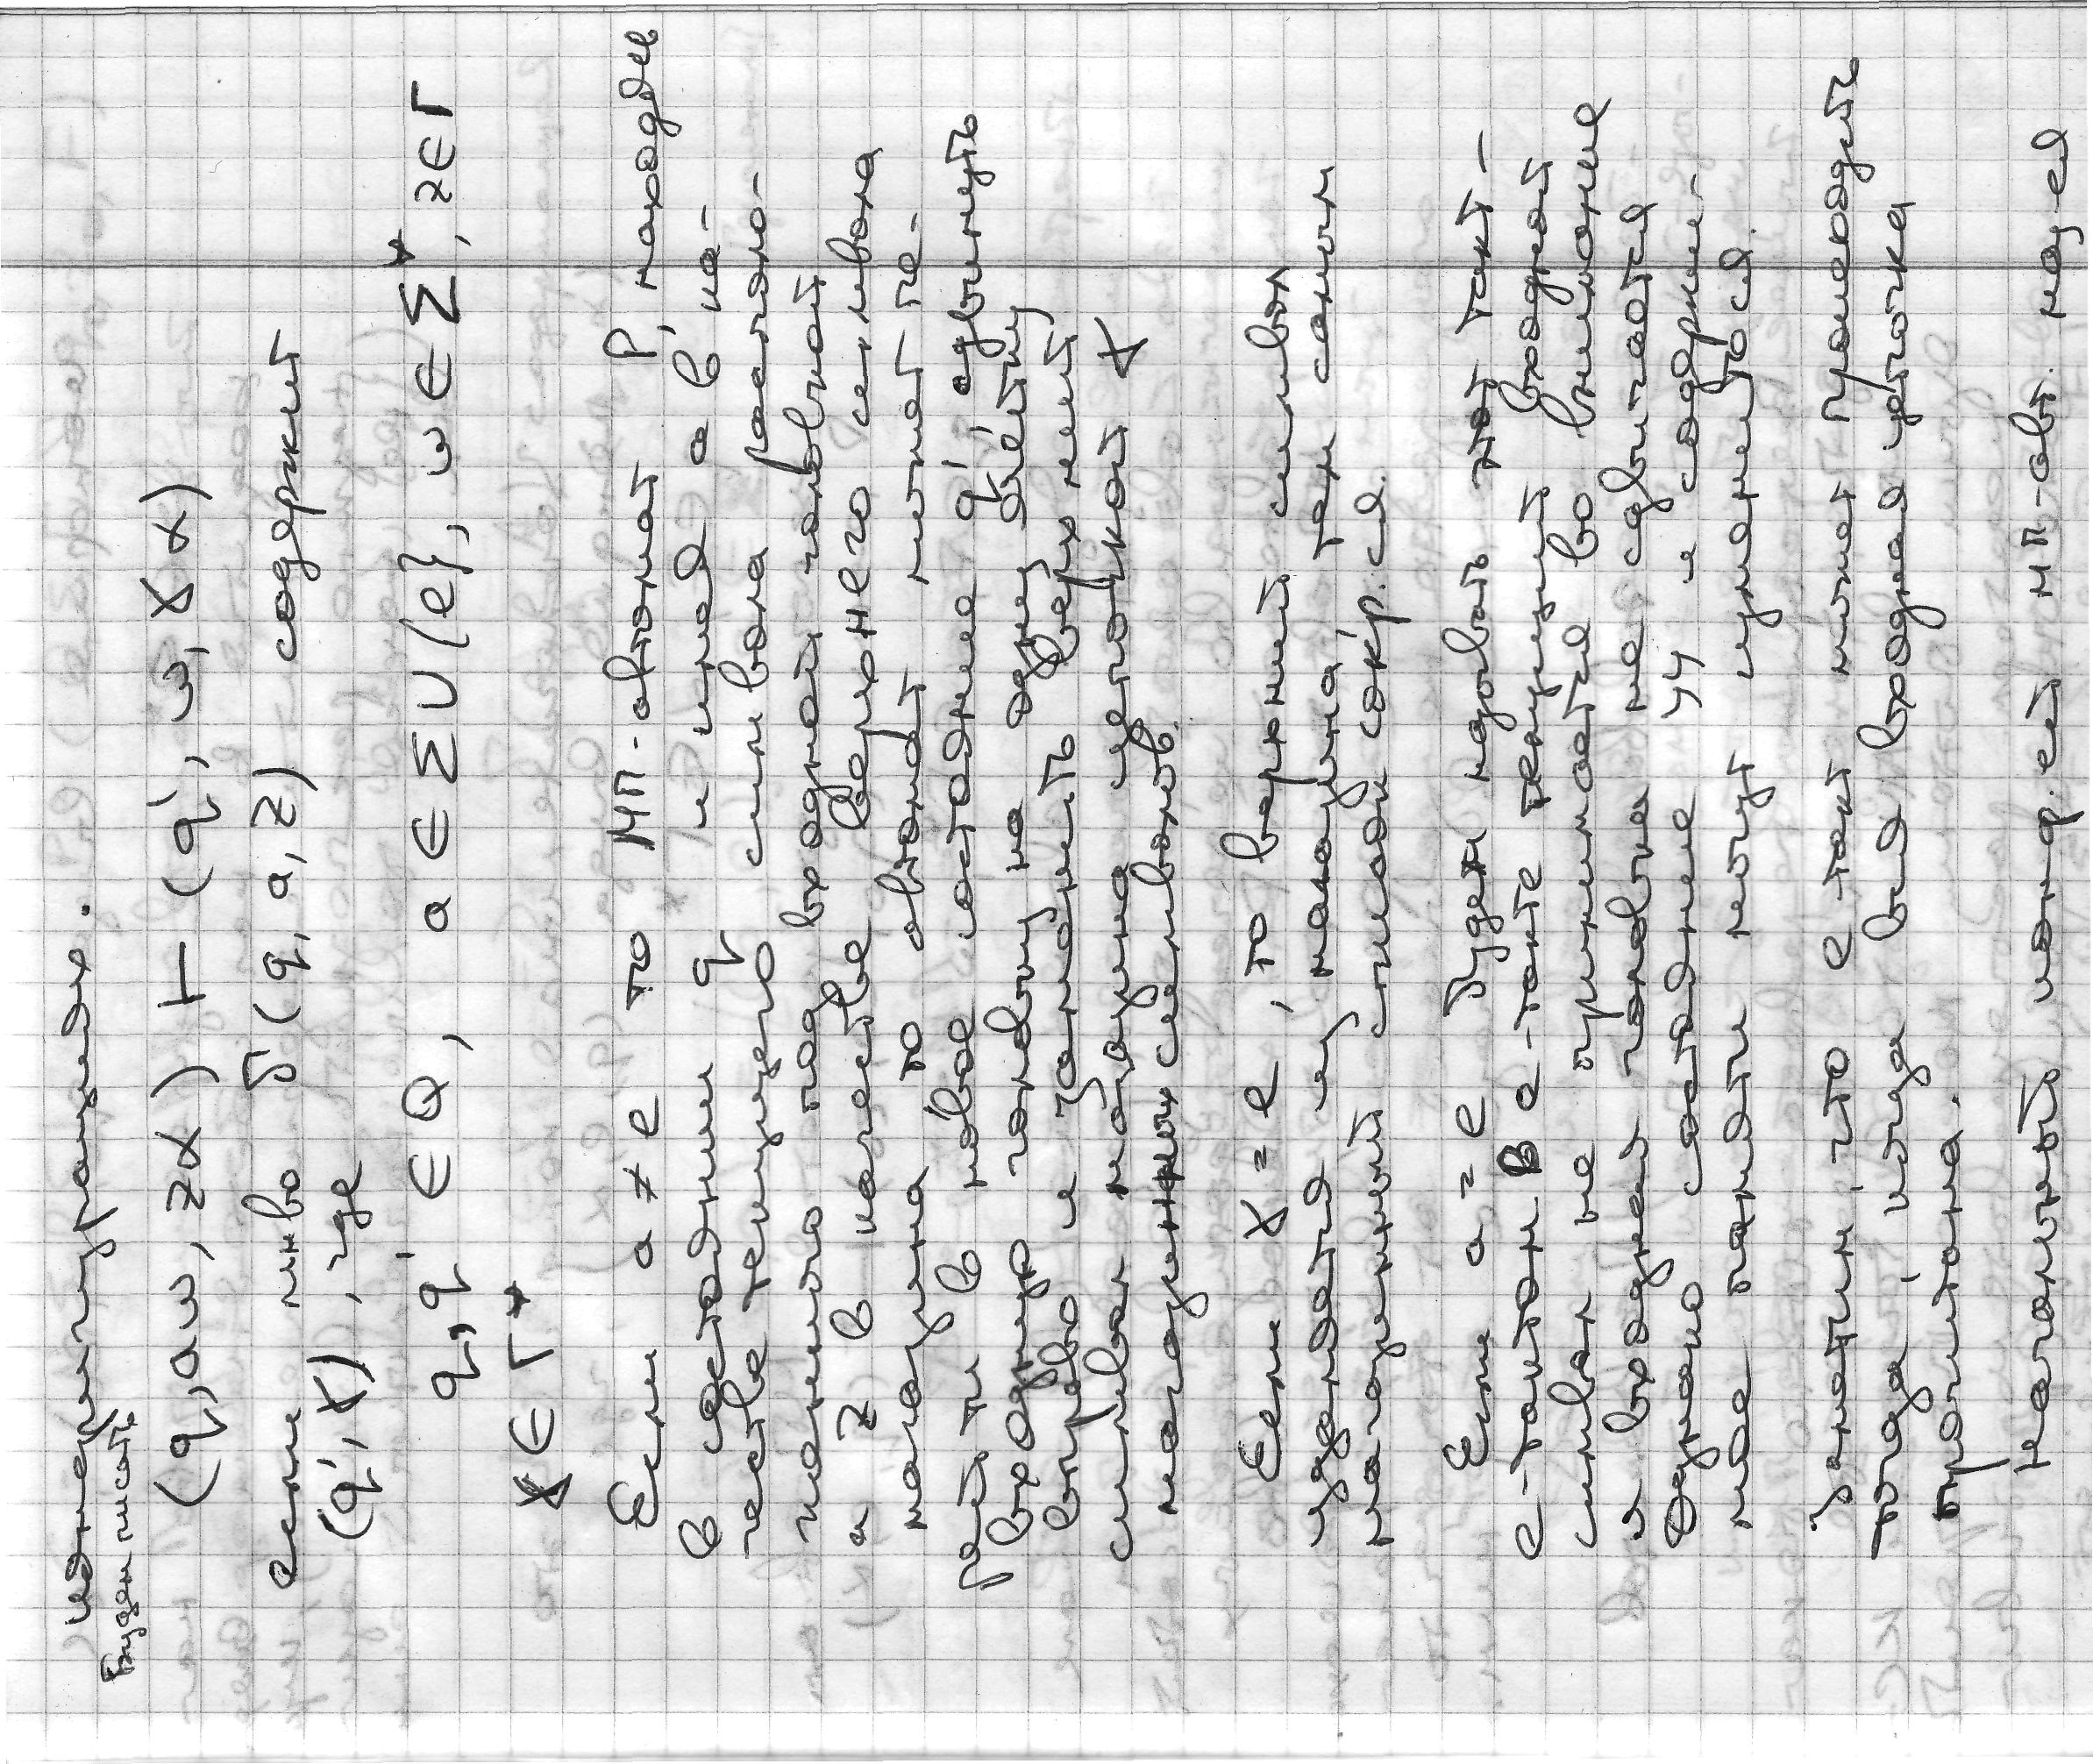 конфигурациях.
Будем писать
(q, aw, zα) ⊢ (q', w, γα)
если мн-во δ(q, a, z) содержит
(q', γ), где
q, q' ∈ Q, a ∈ Σ∪{e}, w ∈ Σ*, z∈Γ
γ ∈ Γ*
Если a ≠ e то МП-автомат P, находясь
в состоянии q и имея a в ка-
честве текущего символа располо-
женного под входной головкой
а z в качестве верхнего символа
магазина то автомат может пе-
рейти в новое состояние q' сдвинуть
входную головку на одну ячейку
вправо и заменить верхний
символ магазина цепочкой γ
магазинных символов.
Если γ = e, то верхний символ
удаляется из магазина тем самым
магазинный список сокр.ся.
Если a = e будем называть этот такт -
e-тактом В e-такте текущий входной
символ не принимается во внимание
и входная головка не сдвигается
Однако состояние УУ и содержи-
мое памяти могут измениться.
Заметим что e такт может происходить
тогда, когда вся входная цепочка
прочитана.
Начальной конф.ей МП-авт. наз-ся